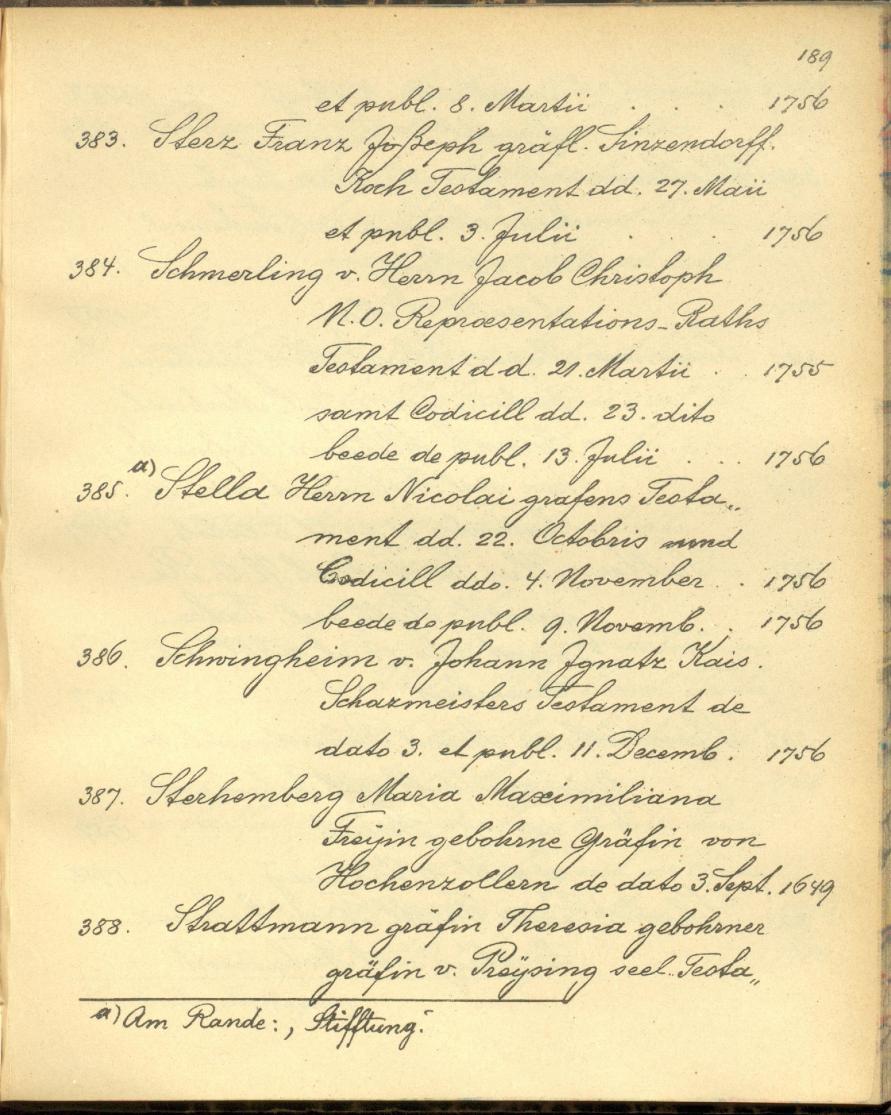 189
et publ. 8. Martii . . . 1756
383. Sterz Franz Joßeph gräfl. Sinzendorff.
Koch Testament dd. 27. Maii
et publ. 3. Julii . . . 1756
384. Schmerling v. Herrn Jacob Christoph
N. O. Repræsentations-Raths
Testament d d. 21. Martii . . 1755
samt Codicill dd. 23. dito
beede de publ. 13. Julii . . . 1756
385. a) Stella Herrn Nicolai grafens Testa„
ment dd. 22. Octobris und
Codicill ddo. 4. November . . 1756
beede de publ. 9. Novemb. . . 1756
386. Schwingheim v. Johann Ignatz Kais.
Schazmeisters Testament de
dato 3. et publ. 11. Decemb. . 1756
387. Sterhemberg Maria Maximiliana
Freÿin gebohrne Gräfin von
Hochenzollern de dato 3. Sept. 1649
388. Strattmann gräfin Theresia gebohrner
gräfin v. Preÿsing seel. Testa„
a) Am Rande: „Stifftung.“